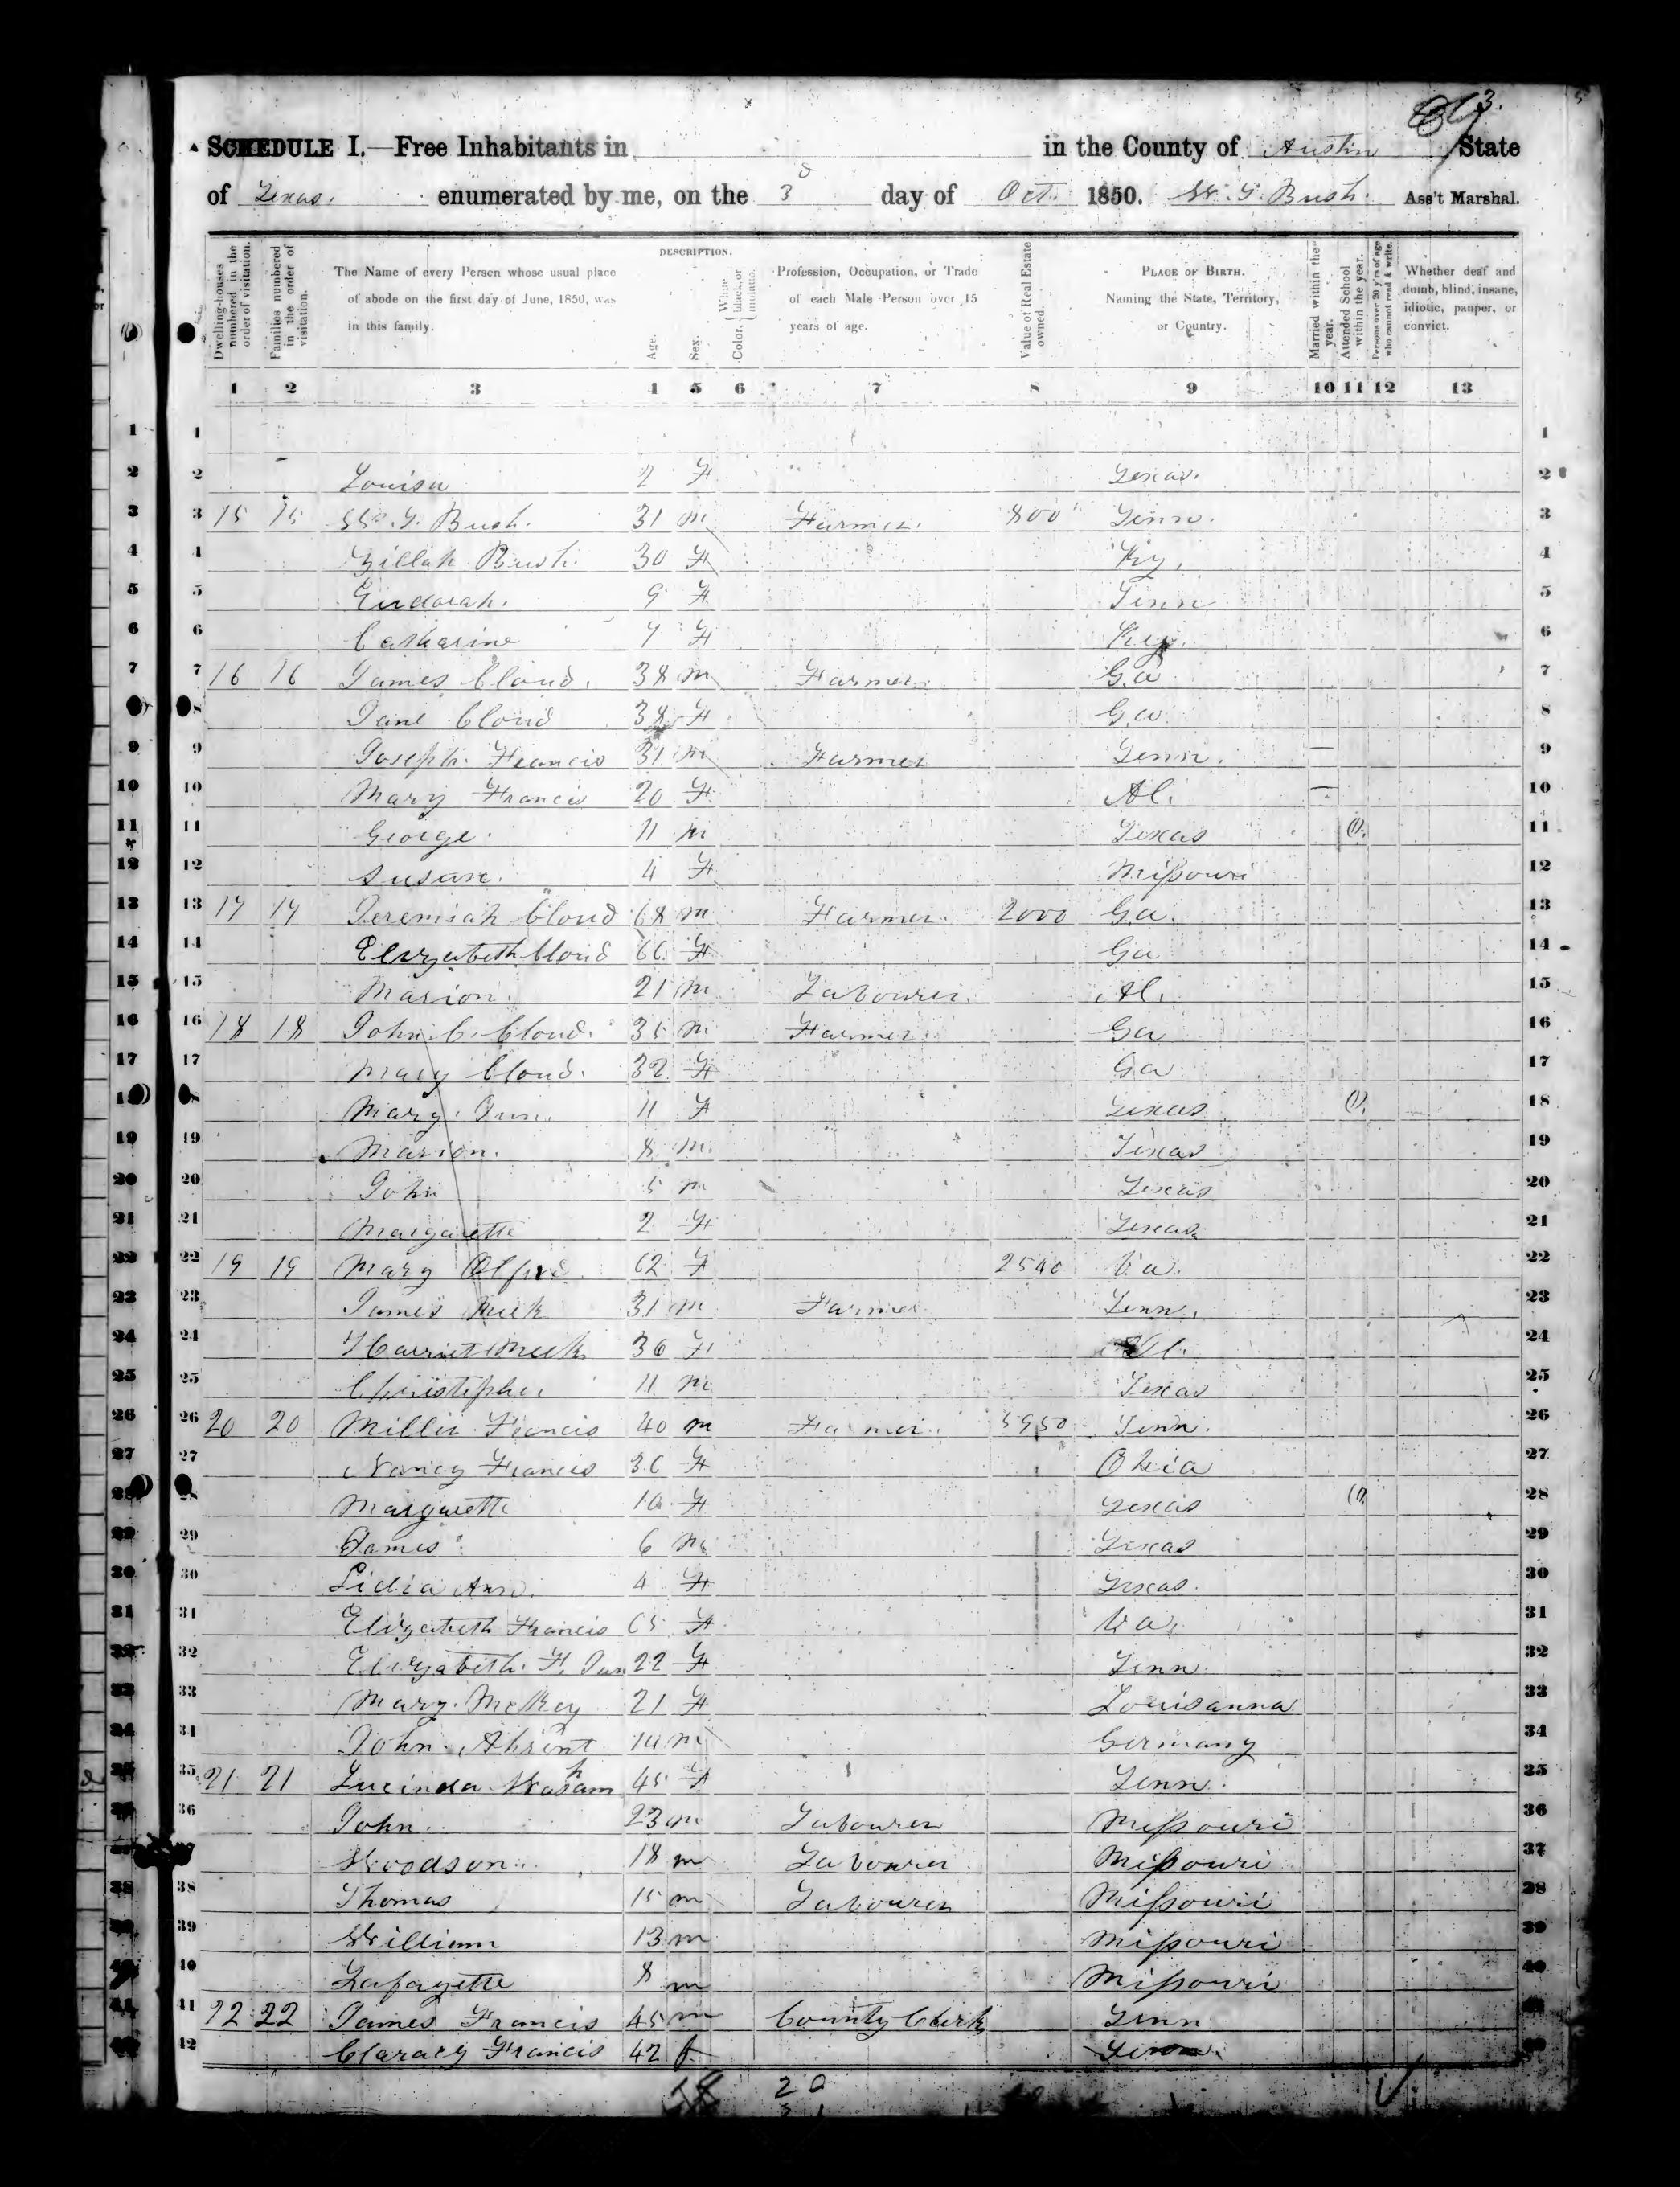 3.
SCHEDULE I.—Free Inhabitants in in the County of Austin State
of Texas. enumerated by me, on the 3d day of Oct. 1850. W. G. Bush. Ass't Marshal.
Dwelling-houses numbered in the order of visitation. Families numbered in the order of visitation. The Name of every Person whose usual place of abode on the first day of June, 1850, was in this family. DESCRIPTION. Age. Sex. Color, White, black, or mulatto. Profession, Occupation, or Trade of each Male Person over 15 years of age. Value of Real Estate owned. PLACE OF BIRTH. Naming the State, Territory, or Country. Married within the year. Attended School within the year. Persons over 20 y'rs of age who cannot read & write. Whether deaf and dumb, blind, insane, idiotic, pauper, or convict.
1 2 3 4 5 6 7 8 9 10 11 12 13
1 1
2 Louisa 2 F Texas. 2
3 15 15 W. G. Bush. 31 m Farmer. 800 Tenn. 3
4 Zillah Bush. 30 F Ky. 4
5 Eudorah. 9 F Tenn 5
6 Catharine 7 F Ky. 6
7 16 16 James Cloud. 38 m Farmer. Ga 7
8 Jane Cloud 38 F Ga 8
9 Joseph Francis 31 m Farmer Tenn. — 9
10 Mary Francis 20 F Al. — 10
11 George. 11 m Texas (1). 11
12 Susan. 4 F Missouri 12
13 17 17 Jeremiah Cloud 68 m Farmer. 2000 Ga. 13
14 Elizabeth Cloud 66 F Ga 14
15 Marion. 21 m Labourer. Al. 15
16 18 18 John C. Cloud. 35 m Farmer. Ga 16
17 Mary Cloud. 32 F Ga 17
18 Mary Ann. 11 F Texas (1). 18
19 Marion. 8 m. Texas 19
20 John 5 m Texas 20
21 Margarette 2 F Texas 21
22 19 19 Mary 62 F 2540 Va. 22
23 James Meek 31 m Farmer Tenn. 23
24 Harriet Meek 36 F Al. 24
25 Christopher 11 m Texas 25
26 20 20 Miller Francis 40 m Farmer. 5950 Tenn. 26
27 Nancy Francis 36 F Ohia 27
28 Margarette 10 F Texas (1). 28
29 James 6 m Texas 29
30 Lidia Ann. 4 F Texas. 30
31 Elizabeth Francis 65 F Va. 31
32 Elizabeth. F. 22 F Tenn. 32
33 Mary. McKey 21 F Louisanna 33
34 John. Ahrint 14 m Germany 34
35 21 21 Lucinda 45 F Tenn. 35
36 John. 23 m Labourer Missouri 36
37 Woodson. 18 m Labourer Missouri 37
38 Thomas 15 m Labourer Missouri 38
39 William 13 m Missouri 39
40 Lafayette 8 m Missouri 40
41 22 22 James Francis 45 m County Clerk Tenn 41
42 Claracy Francis 42 f Tenn. 42
20